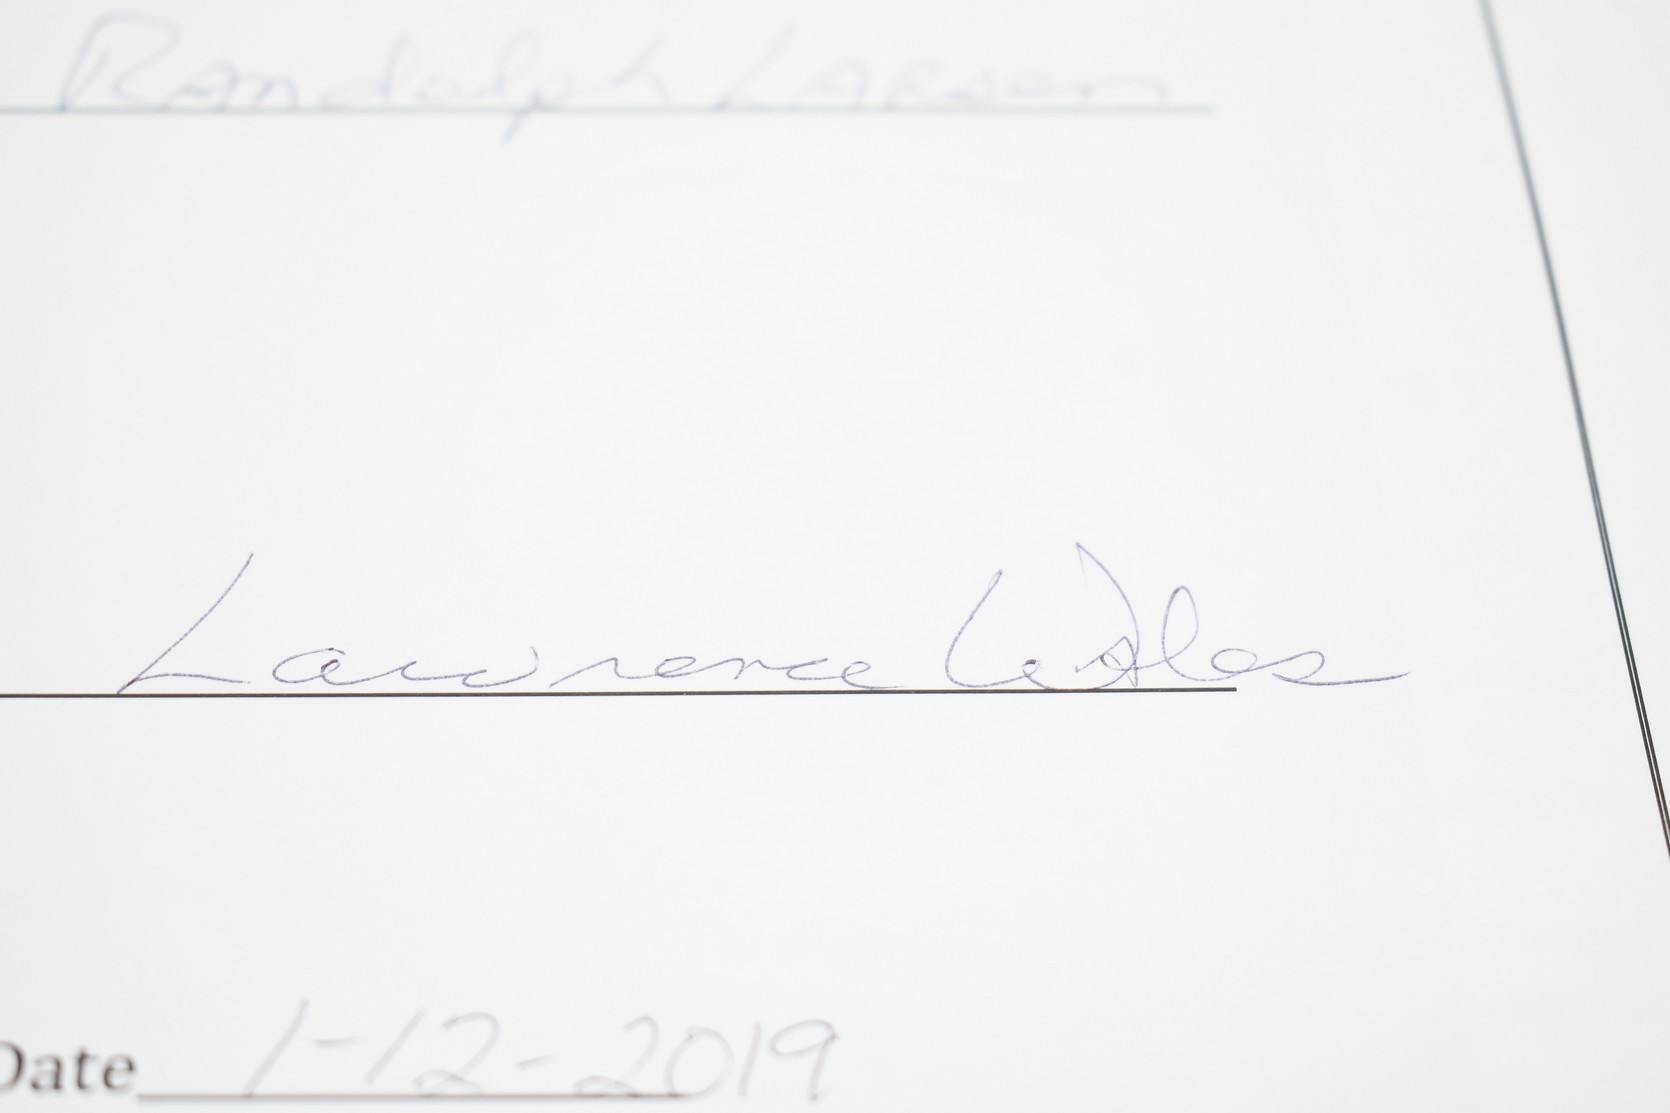 Randolph Larsen
Lawrence Wales
Date 1-12-2019